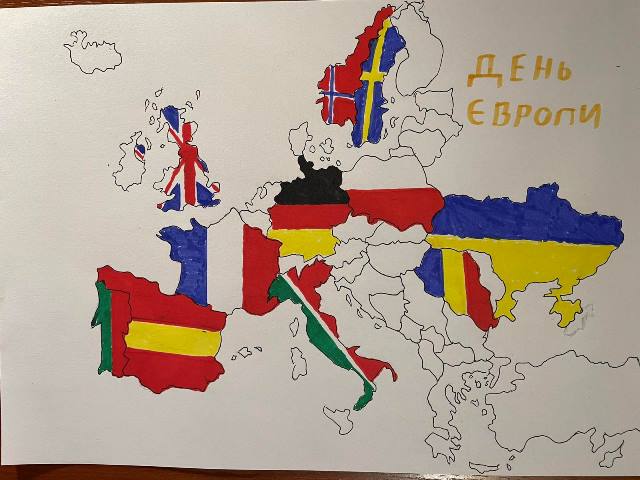 ДЕНЬ
ЄВРОПИ